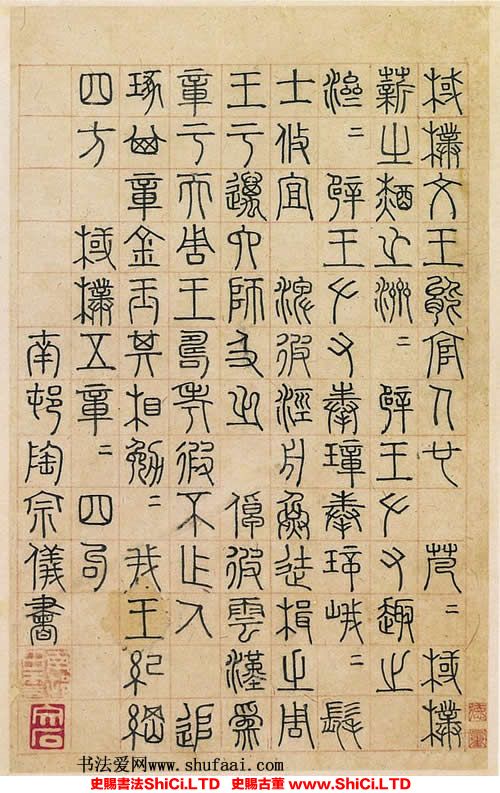 棫樸文王能官人也 芃〻棫樸
薪之槱之濟〻辟王左右趣之
濟〻辟王左右奉璋奉璋峨〻髦
士攸宜 淠彼涇舟烝徒楫之周
王于邁六師及之 倬彼雲漢爲
章于天周王壽考遐不作人 追
琢其章金玉其相勉〻我王紀綱
四方 棫樸五章〻四句
南邨陶宗儀書
书法爱网 www.shufaai.com
史賜書法ShiCi.LTD 史賜古董 www.ShiCi.LTD